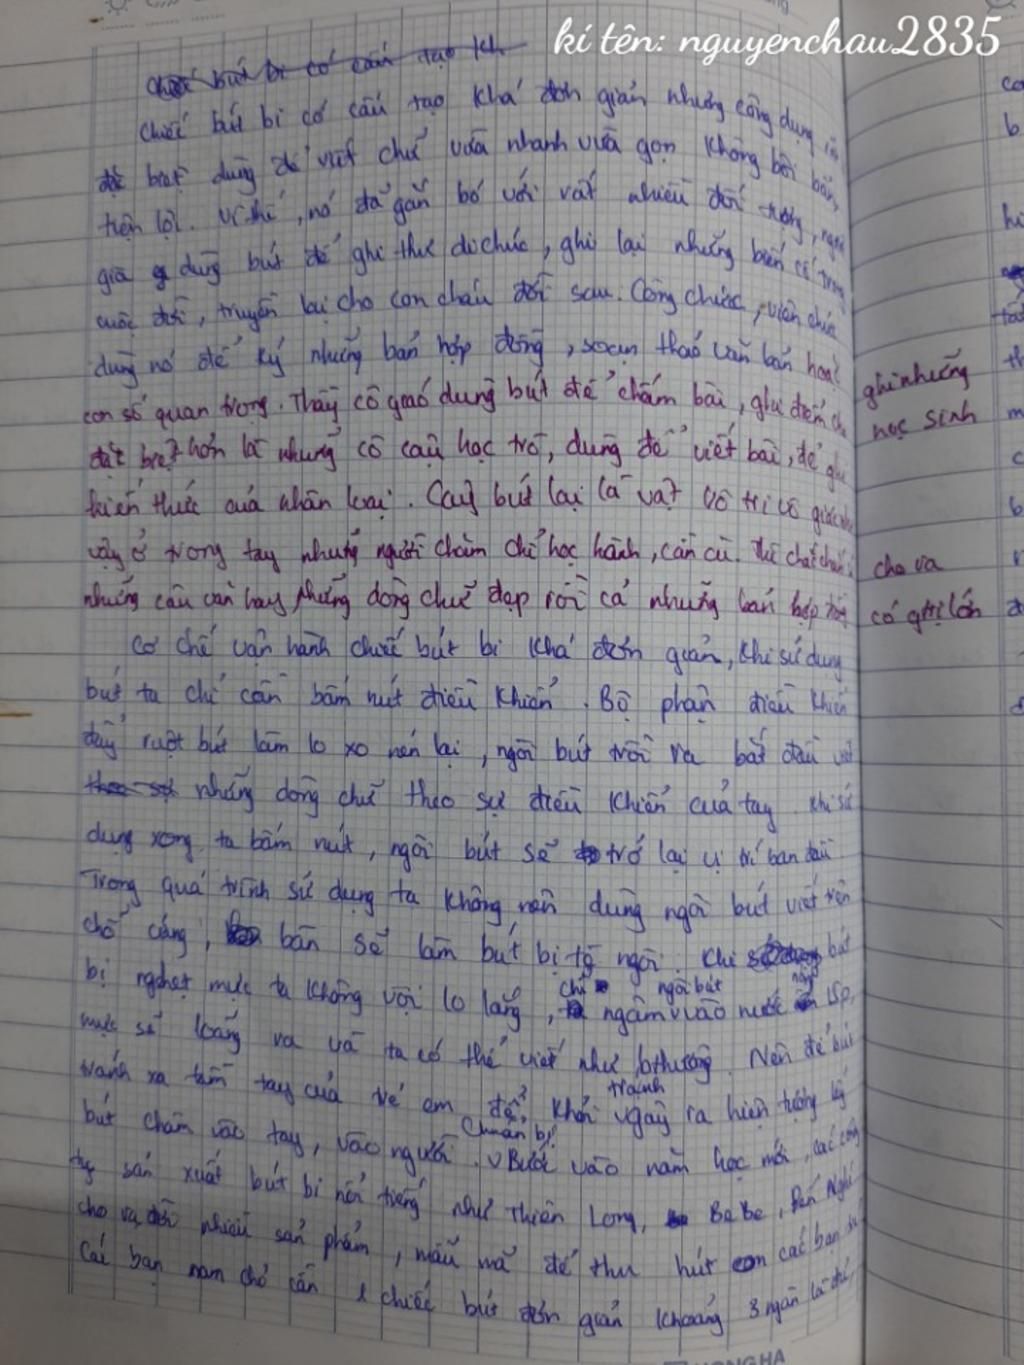 kí tên: nguyenchau2835
Chiếc bút bi có cấu tạo kh
Chiếc bút bi có cấu tạo khá đơn giản nhưng công dụng
biệt dùng để viết chữ vừa nhanh vừa gọn không bôi bẩn,
tiện lợi. Vì thế, nó đã gắn bó với rất nhiều đối tượng, người
già dùng bút để ghi thư di chúc, ghi lại những biến cố trong
cuộc đời, truyền lại cho con cháu đời sau. Công chức, viên chức
dùng nó để ký những bản hợp đồng, soạn thảo văn bản hoặc ghi những
con số quan trọng. Thầy cô giáo dùng bút để chấm bài, ghi điểm cho học sinh
đặt biệt hơn là những cô cậu học trò, dùng để viết bài, để ghi
kiến thức của nhân loại. Cây bút lại là vật vô tri vô giác
vậy ở trong tay những người chăm chỉ học hành, cần cù. Thì cho ra
những câu văn hay những dòng chữ đẹp rồi cả những bản hợp đồng có giá trị lớn
Cơ chế vận hành chiếc bút bi khá đơn giản, khi sử dụng
bút ta chỉ cần bấm nút điều khiển. Bộ phận điều khiển
đẩy ruột bút làm lo xo nén lại, ngòi bút trồi ra bắt đầu viết
những dòng chữ theo sự điều khiển của tay. Khi sử
dụng xong ta bấm nút, ngòi bút sẽ trở lại vị trí ban đầu.
Trong quá trình sử dụng ta không nên dùng ngòi bút viết trên
chỗ cứng, bàn sẽ làm bút bị tò ngòi. Khi bút
bị nghẹt mực ta không vội lo lắng, chỉ ngâm ngòi bút vào nước 15p,
mực sẽ loãng ra và ta có thể viết như bthường. Nên để bút
tránh xa tầm tay của trẻ em để khỏi tránh ra hiện tượng lấy
bút châm vào tay, vào người. Chuẩn bị Bước vào năm học mới, các công
ty sản xuất bút bi nổi tiếng như Thiên Long, Bến Nghé
cho ra đời nhiều sản phẩm, mẫu mã để thu hút các bạn
Các bạn nam chỉ cần 1 chiếc bút đơn giản khoảng 3 ngàn là